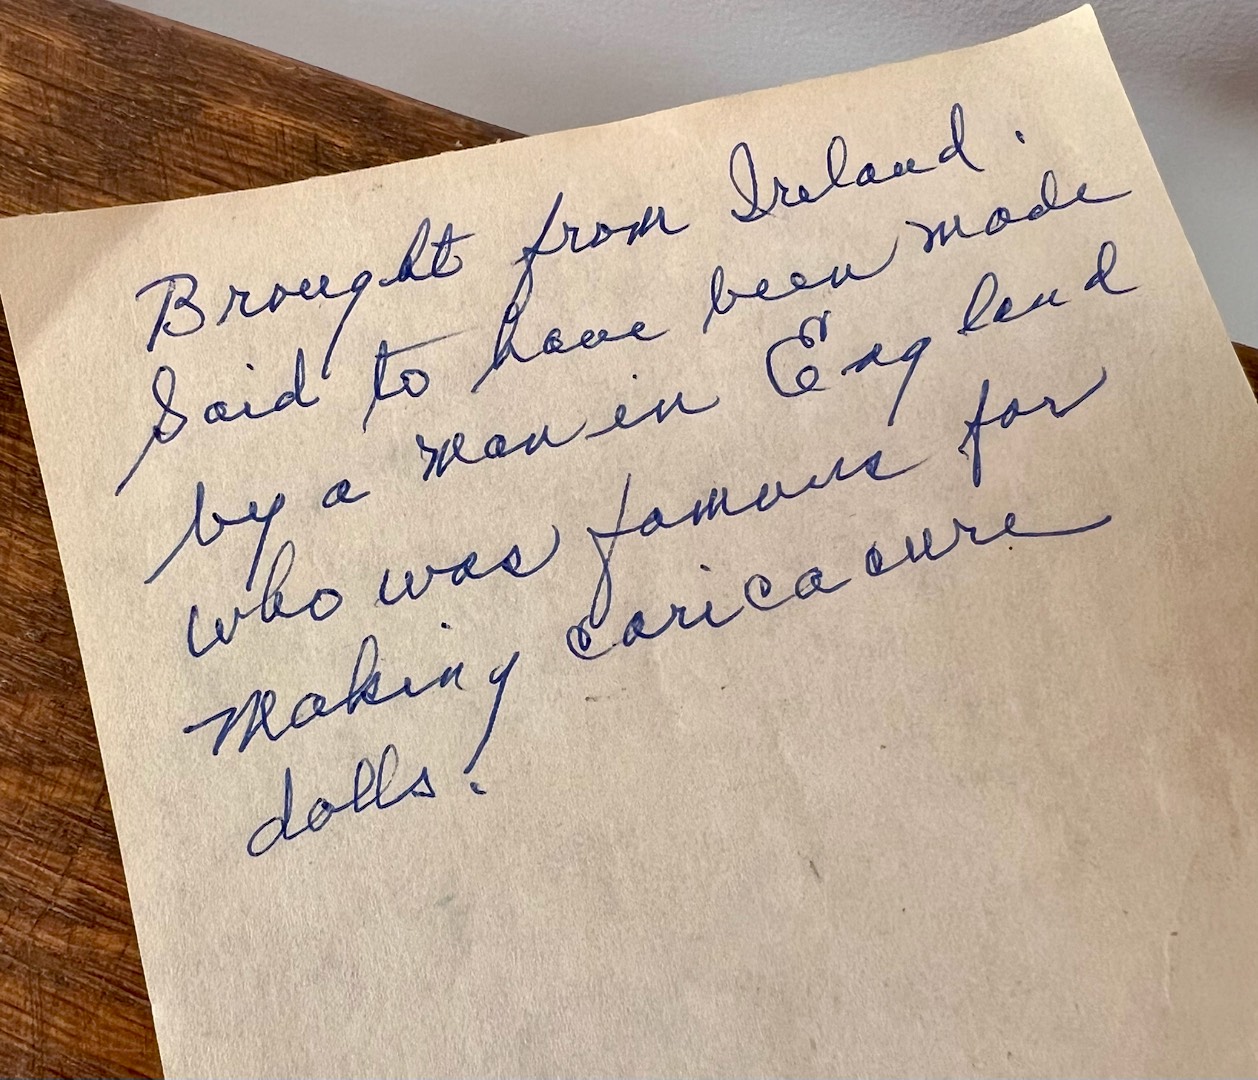 Brought from Ireland.
Said to have been made
by a man in England
who was famous for
making caricacure
dolls.